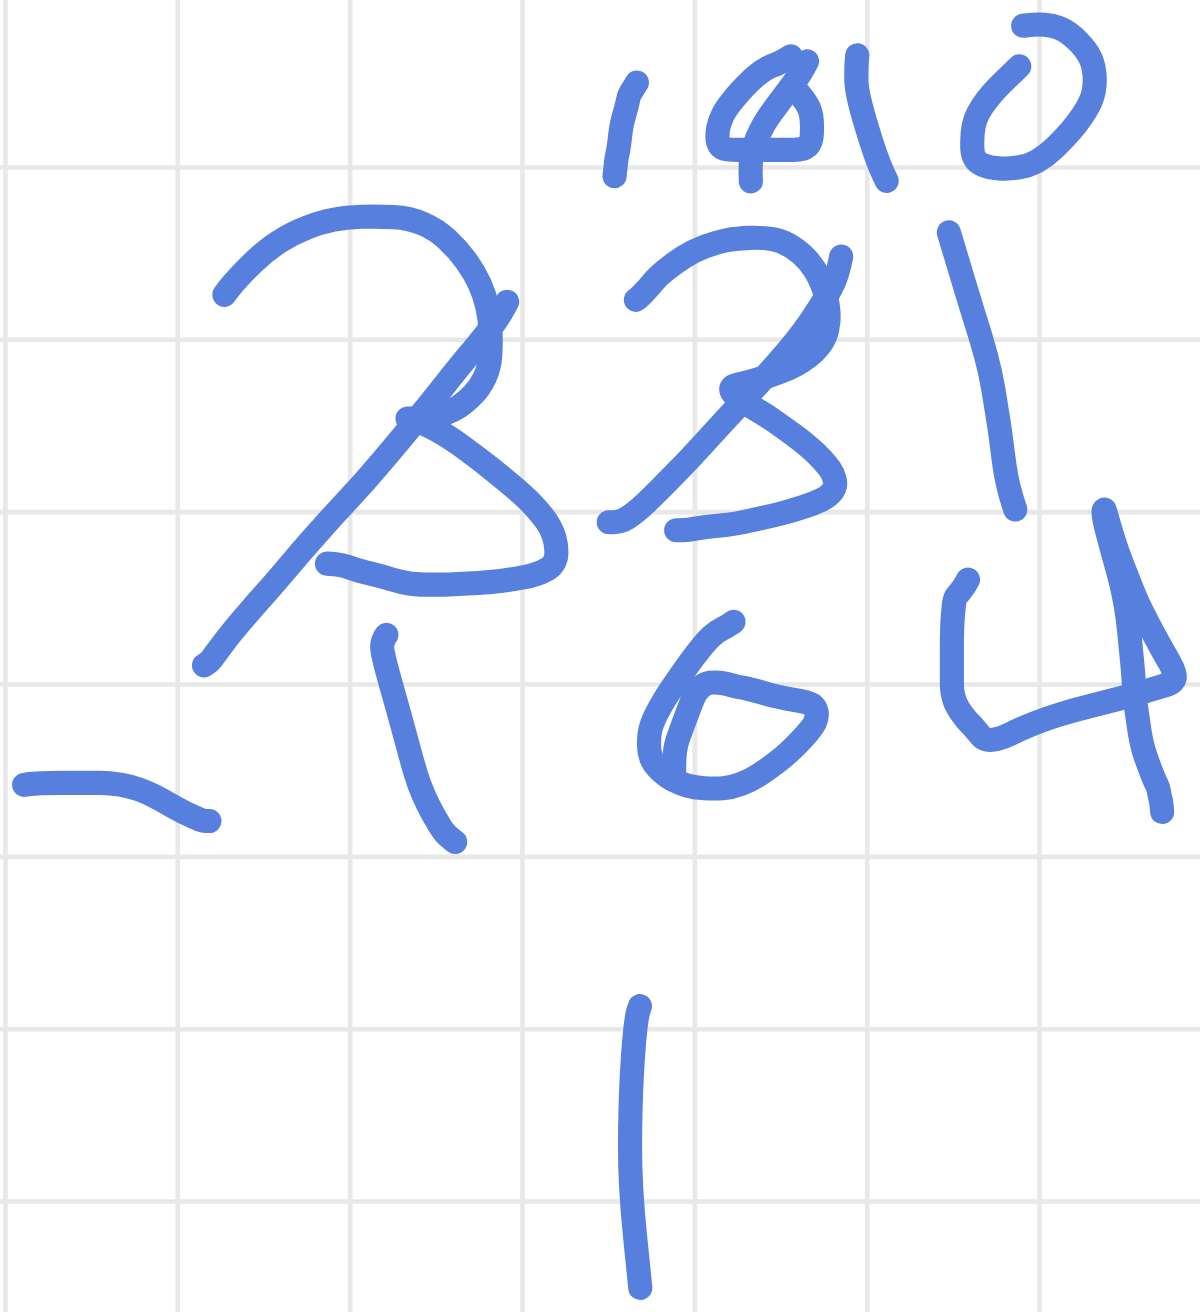 1 10
331
- 164
1